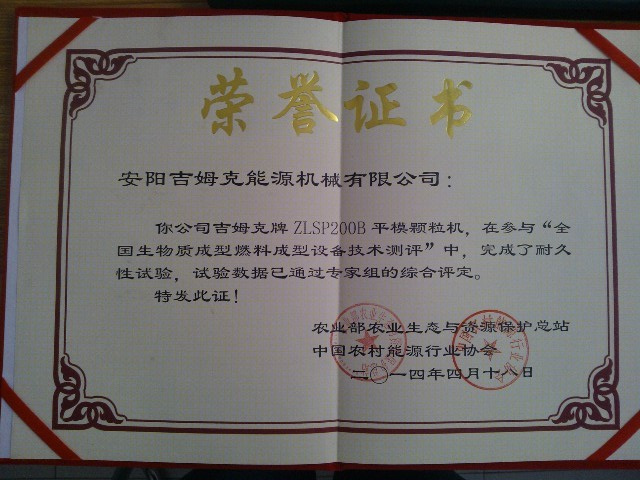 荣誉证书
安阳吉姆克能源机械有限公司：
你公司吉姆克牌 ZLSP200B 平模颗粒机，在参与“全
国生物质成型燃料成型设备技术测评”中，完成了耐久
性试验，试验数据已通过专家组的综合评定。
特发此证！
农业部农业生态与资源保护总站
中国农村能源行业协会
二〇一四年四月十八日